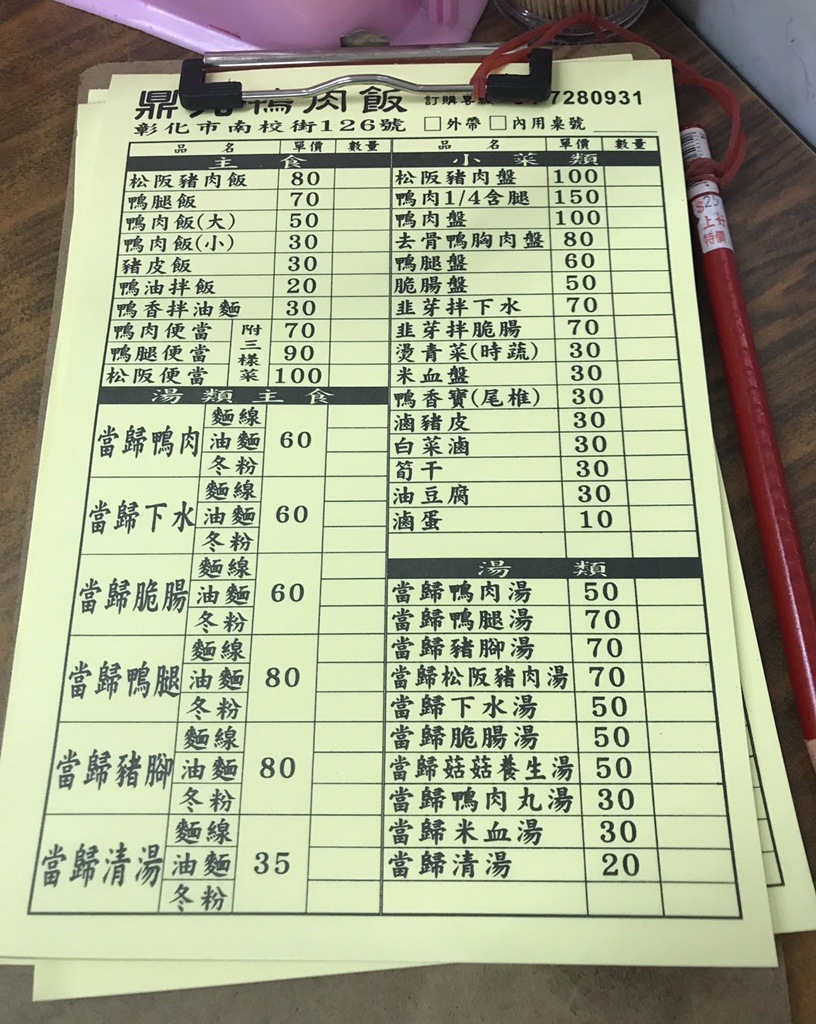 鼎 鴨肉飯 訂購專 7280931
彰化市南校街126號 □外帶 □內用桌號
品名 單價 數量
主食
松阪豬肉飯 80
鴨腿飯 70
鴨肉飯(大) 50
鴨肉飯(小) 30
豬皮飯 30
鴨油拌飯 20
鴨香拌油麵 30
鴨肉便當 附三樣菜 70
鴨腿便當 90
松阪便當 100
湯類主食
當歸鴨肉 麵線 油麵 冬粉 60
當歸下水 麵線 油麵 冬粉 60
當歸脆腸 麵線 油麵 冬粉 60
當歸鴨腿 麵線 油麵 冬粉 80
當歸豬腳 麵線 油麵 冬粉 80
當歸清湯 麵線 油麵 冬粉 35
品名 單價 數量
小菜類
松阪豬肉盤 100
鴨肉1/4含腿 150
鴨肉盤 100
去骨鴨胸肉盤 80
鴨腿盤 60
脆腸盤 50
韭芽拌下水 70
韭芽拌脆腸 70
燙青菜(時蔬) 30
米血盤 30
鴨香寶(尾椎) 30
滷豬皮 30
白菜滷 30
筍干 30
油豆腐 30
滷蛋 10
湯類
當歸鴨肉湯 50
當歸鴨腿湯 70
當歸豬腳湯 70
當歸松阪豬肉湯 70
當歸下水湯 50
當歸脆腸湯 50
當歸菇菇養生湯 50
當歸鴨肉丸湯 30
當歸米血湯 30
當歸清湯 20
$25
上好
特價